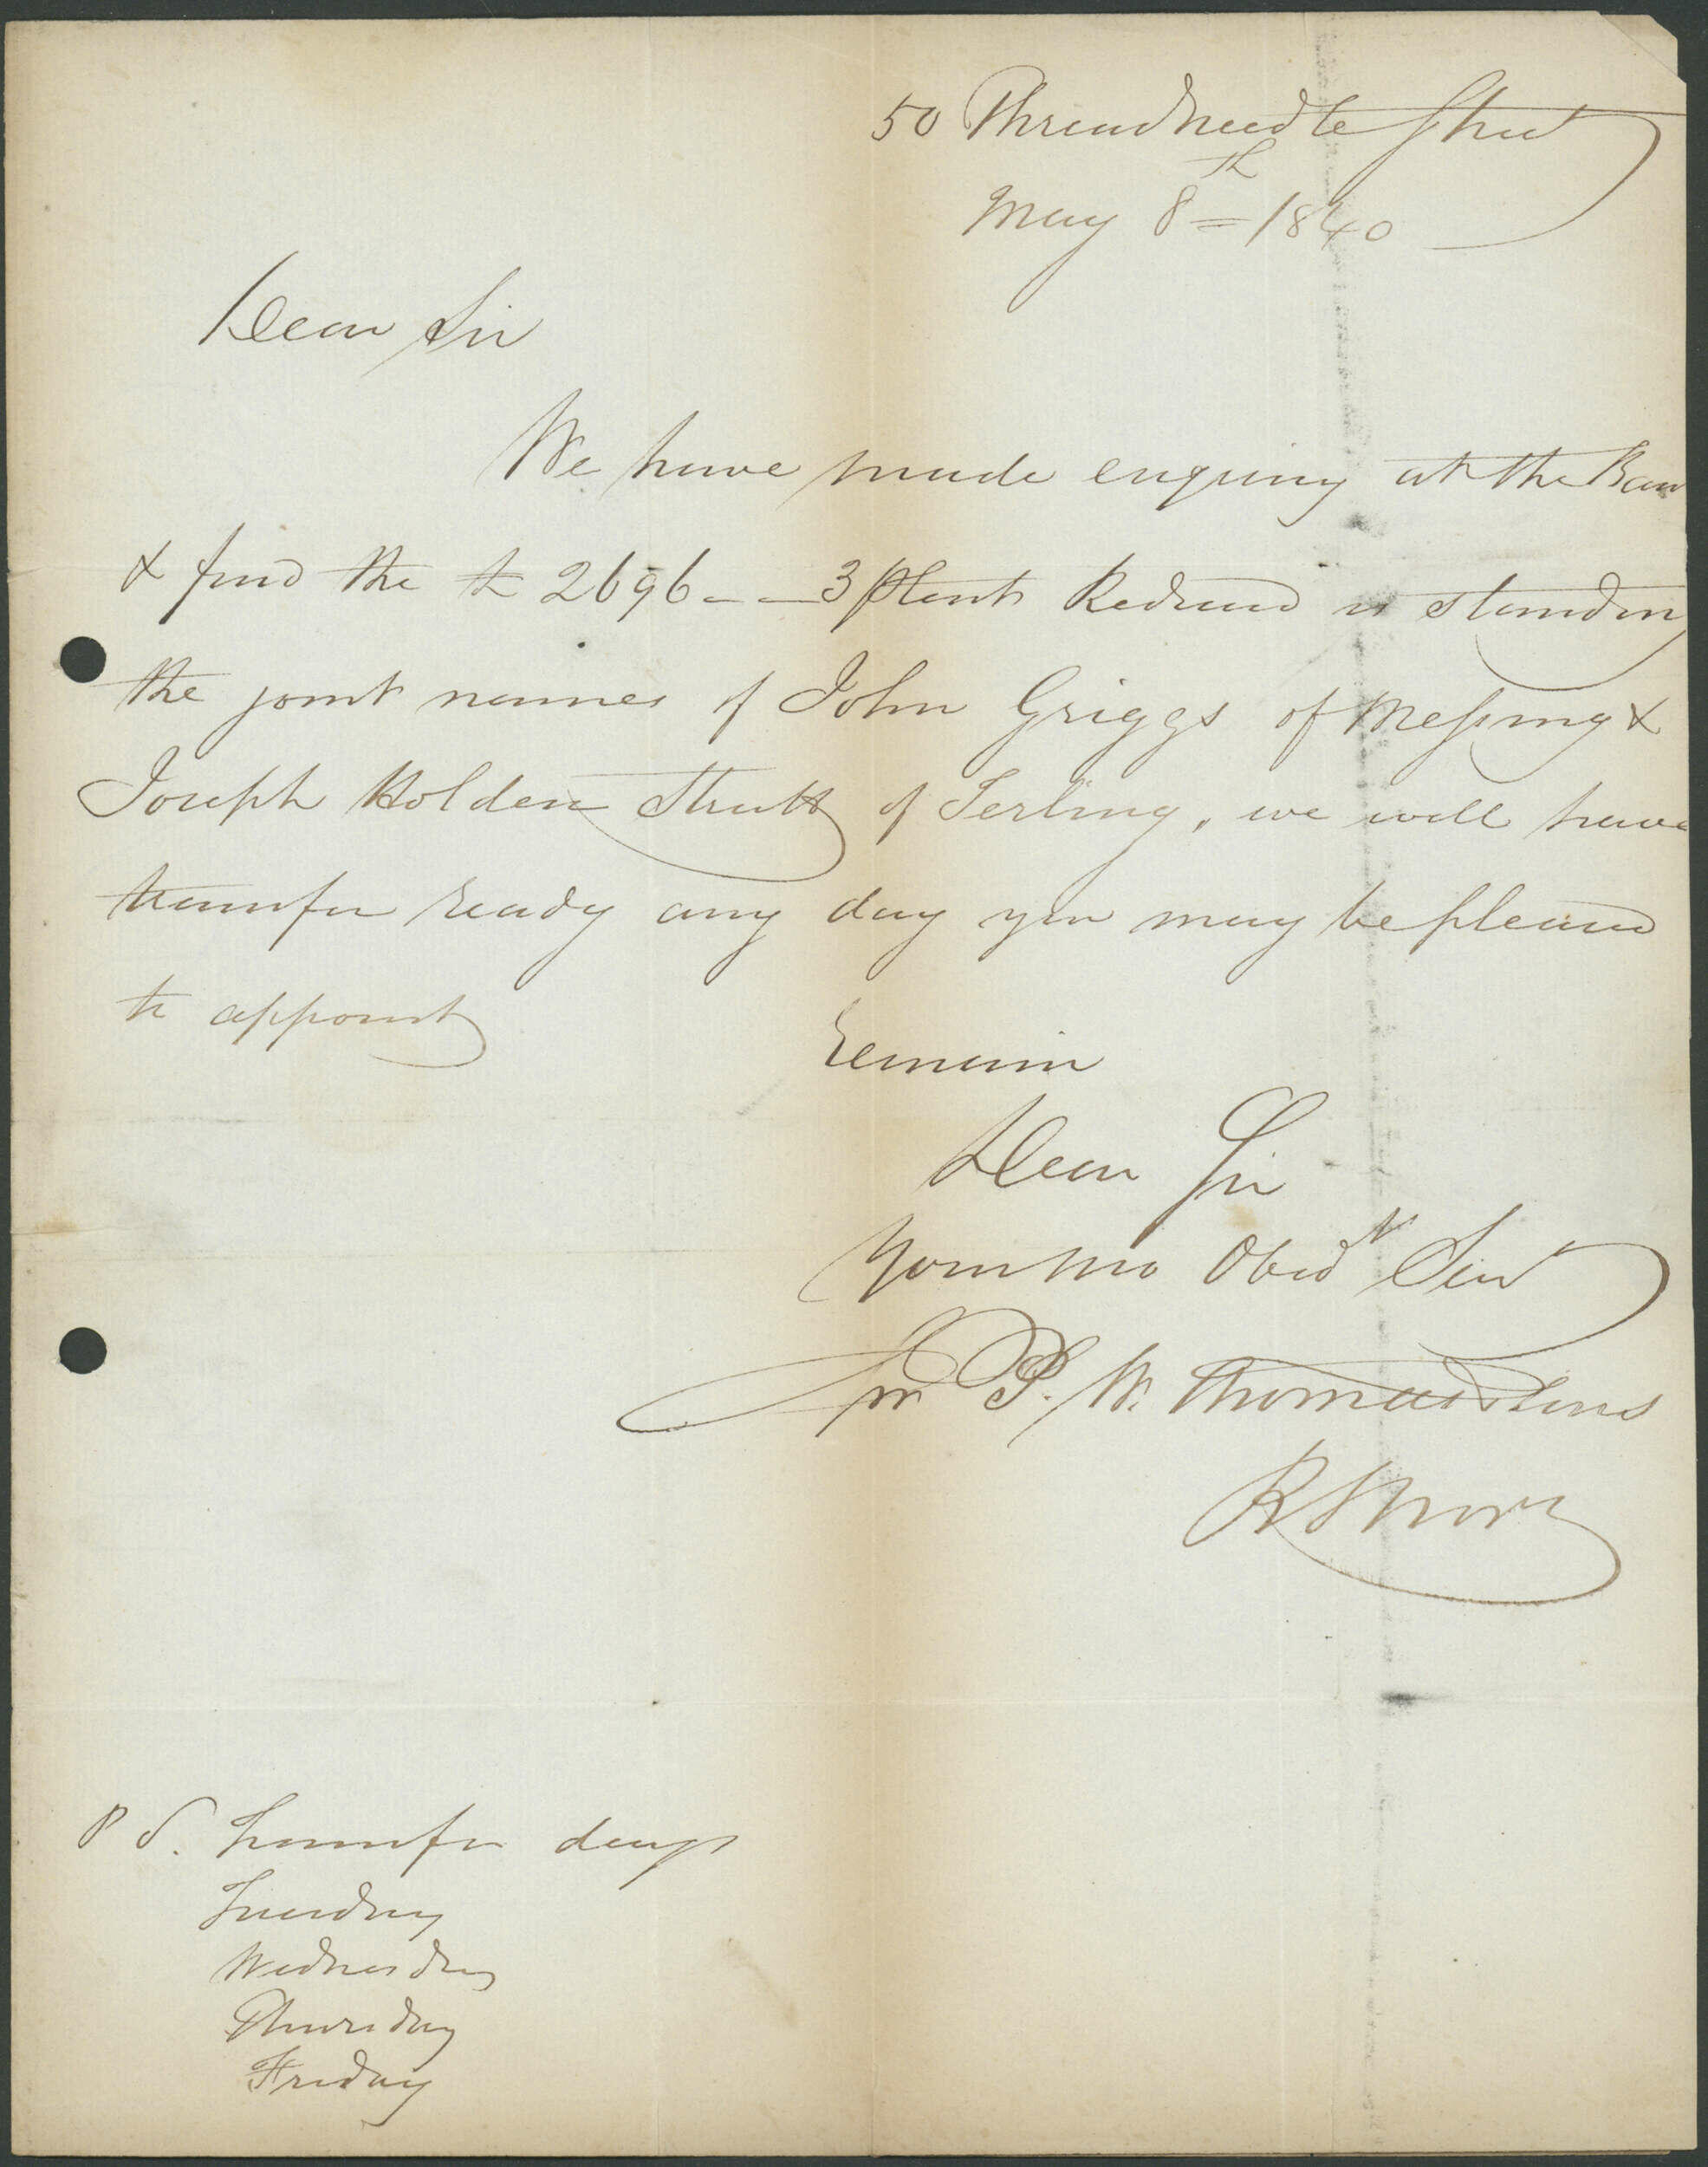 50 Threadneedle Street
May 8th 1840
Dear Sir
We have made enquiry at the Ban
& find the £ 2696 - - 3 PCent Reduced is standing
the joint names of John Griggs of Messing &
Joseph Holden Strutt of Terling, we will have
transfer ready any day you may be pleased
to appoint
remain
Dear Sir
Your mo Obedt Serv
for P. W. Thomas & Sons
P S. Transfer days
Tuesday
Wednesday
Thursday
Friday